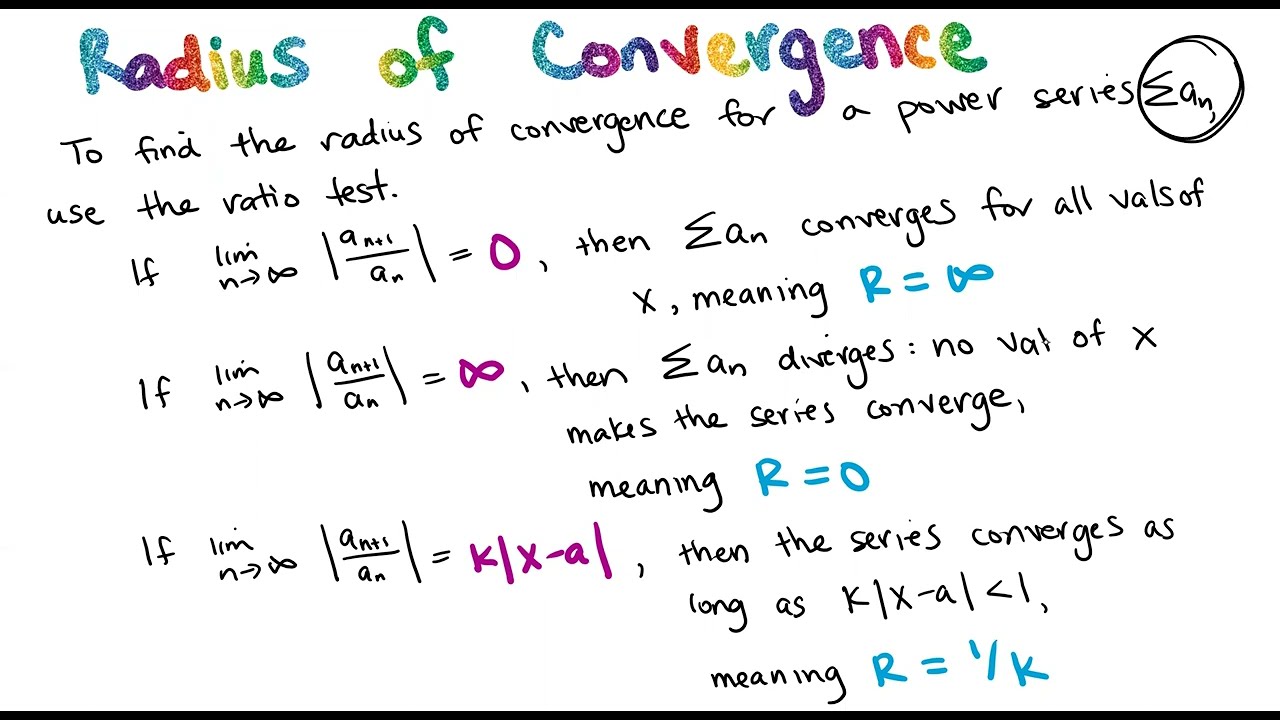 Radius of Convergence
To find the radius of convergence for a power series Σaₙ,
use the ratio test.
If lim n→∞ |aₙ₊₁/aₙ| = 0, then Σaₙ converges for all vals of
x, meaning R = ∞
If lim n→∞ |aₙ₊₁/aₙ| = ∞, then Σaₙ diverges: no val of x
makes the series converge,
meaning R = 0
If lim n→∞ |aₙ₊₁/aₙ| = K|x-a|, then the series converges as
long as K|x-a| < 1,
meaning R = 1/K